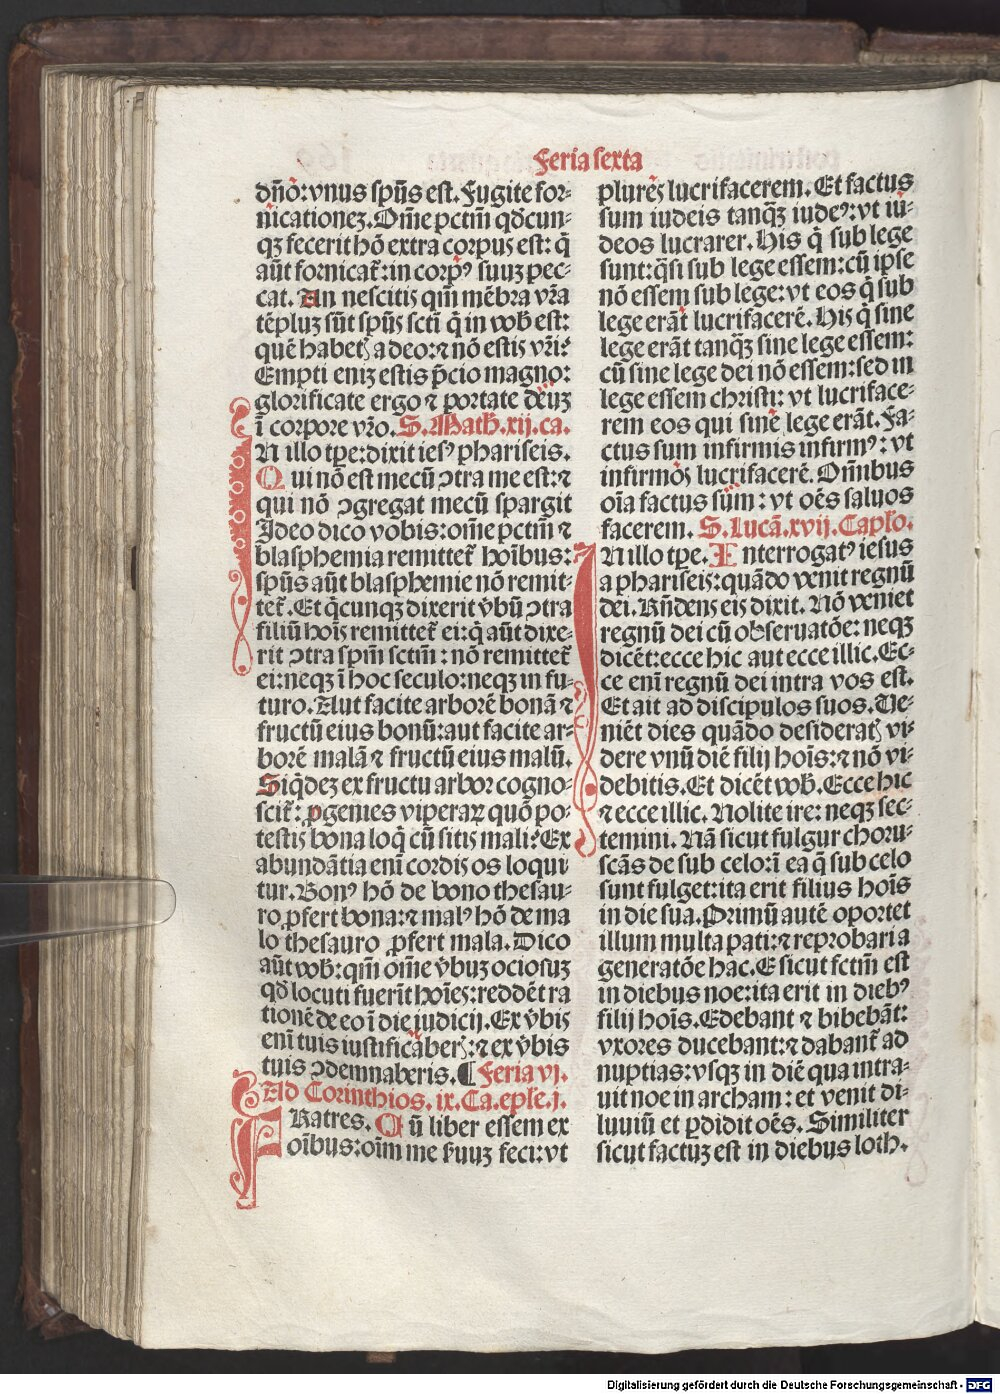 Feria sexta
dñō: vnus spūs est. Fugite for-
nicationeʒ. Om̄e pctm̄ qđcun-
qʒ fecerit hō extra corpus est: q̄
aūt fornicat̄: in corpꝰ suuʒ pec-
cat. An nescitis qm̄ mēbra vr̄a
tēpluʒ sūt spūs sctī q̄ in vob̄ est:
quē habetꝭ a deo: ⁊ nō estis vr̄i?
Empti eniʒ estis p̄cio magno:
glorificate ergo ⁊ portate deuʒ
ī corpore vr̄o. S. Math. xij. ca.
IN illo tꝑe: dixit iesꝰ phariseis.
Qui nō est mecū ꝯtra me est: ⁊
qui nō ꝯgregat mecū spargit
Ideo dico vobis: om̄e pctm̄ ⁊
blasphemia remittet̄ hoībus:
spūs aūt blasphemie nō remit-
tet̄. Et q̄cunqʒ dixerit v̄bū ꝯtra
filiū hoīs remittet̄ ei: q̄ aūt dixe-
rit ꝯtra spm̄ sctm̄: nō remittet̄
ei: neqʒ ī hoc seculo: neqʒ in fu-
turo. Aut facite arborē bonā ⁊
fructū eius bonū: aut facite ar-
borē malā ⁊ fructū eius malū.
Siq̄deʒ ex fructu arbor cogno-
scit̄: ꝓgenies viperaꝝ quō po-
testis bona loq̄ cū sitis mali? Ex
abundātia enī cordis os loqui
tur. Bonꝰ hō de bono thesau-
ro ꝓfert bona: ⁊ malꝰ hō de ma
lo thesauro ꝓfert mala. Dico
aūt vob̄: qm̄ om̄e v̄buʒ ociosuʒ
qđ locuti fuerīt hoīes: reddēt ra
tionē de eo ī die iudicij. Ex v̄bis
enī tuis iustificaberꝭ: ⁊ ex v̄bis
tuis ꝯdemnaberis. ¶ Feria vj.
Ad Corinthios. ix. Ca. eple. j.
FRatres. Cū liber essem ex
oībus: oīm me ẜuuʒ feci: vt
plures lucrifacerem. Et factus
sum iudeis tanqʒ̄ iudeꝰ: vt iu-
deos lucrarer. His q̄ sub lege
sunt: q̄si sub lege essem: cū ipse
nō essem sub lege: vt eos q̄ sub
lege erāt lucrifacerē. His q̄ sine
lege erāt tanqʒ̄ sine lege essem:
cū sine lege dei nō essem: sed in
lege essem christi: vt lucriface-
rem eos qui sine lege erāt. Fa-
ctus sum infirmis infirmꝰ: vt
infirmos lucrifacerē. Om̄ibus
oīa factus sum: vt oēs saluos
facerem. S. Lucā. xvij. Caplo.
IN illo tꝑe. Interrogatꝰ iesus
a phariseis: quādo venit regnū
dei. Rn̄dens eis dixit. Nō veniet
regnū dei cū obseruatōe: neqʒ
dicēt: ecce hic aut ecce illic. Ec-
ce enī regnū dei intra vos est.
Et ait ad discipulos suos. Ue-
niēt dies quādo desideratꝭ vi-
dere vnū diē filij hoīs: ⁊ nō vi-
debitis. Et dicēt vob̄. Ecce hic
⁊ ecce illic. Nolite ire: neqʒ sec-
temini. Nā sicut fulgur choru-
scās de sub celo: ī ea q̄ sub celo
sunt fulget: ita erit filius hoīs
in die sua. Primū autē oportet
illum multa pati: ⁊ reprobari a
generatōe hac. E sicut fctm̄ est
in diebus noe: ita erit in diebꝰ
filij hoīs. Edebant ⁊ bibebāt:
vxores ducebant: ⁊ dabant̄ ad
nuptias: vsqʒ in diē qua intra-
uit noe in archam: et venit di-
luuiū et ꝑdidit oēs. Similiter
sicut factuʒ est in diebus loth.
Digitalisierung gefördert durch die Deutsche Forschungsgemeinschaft - DFG